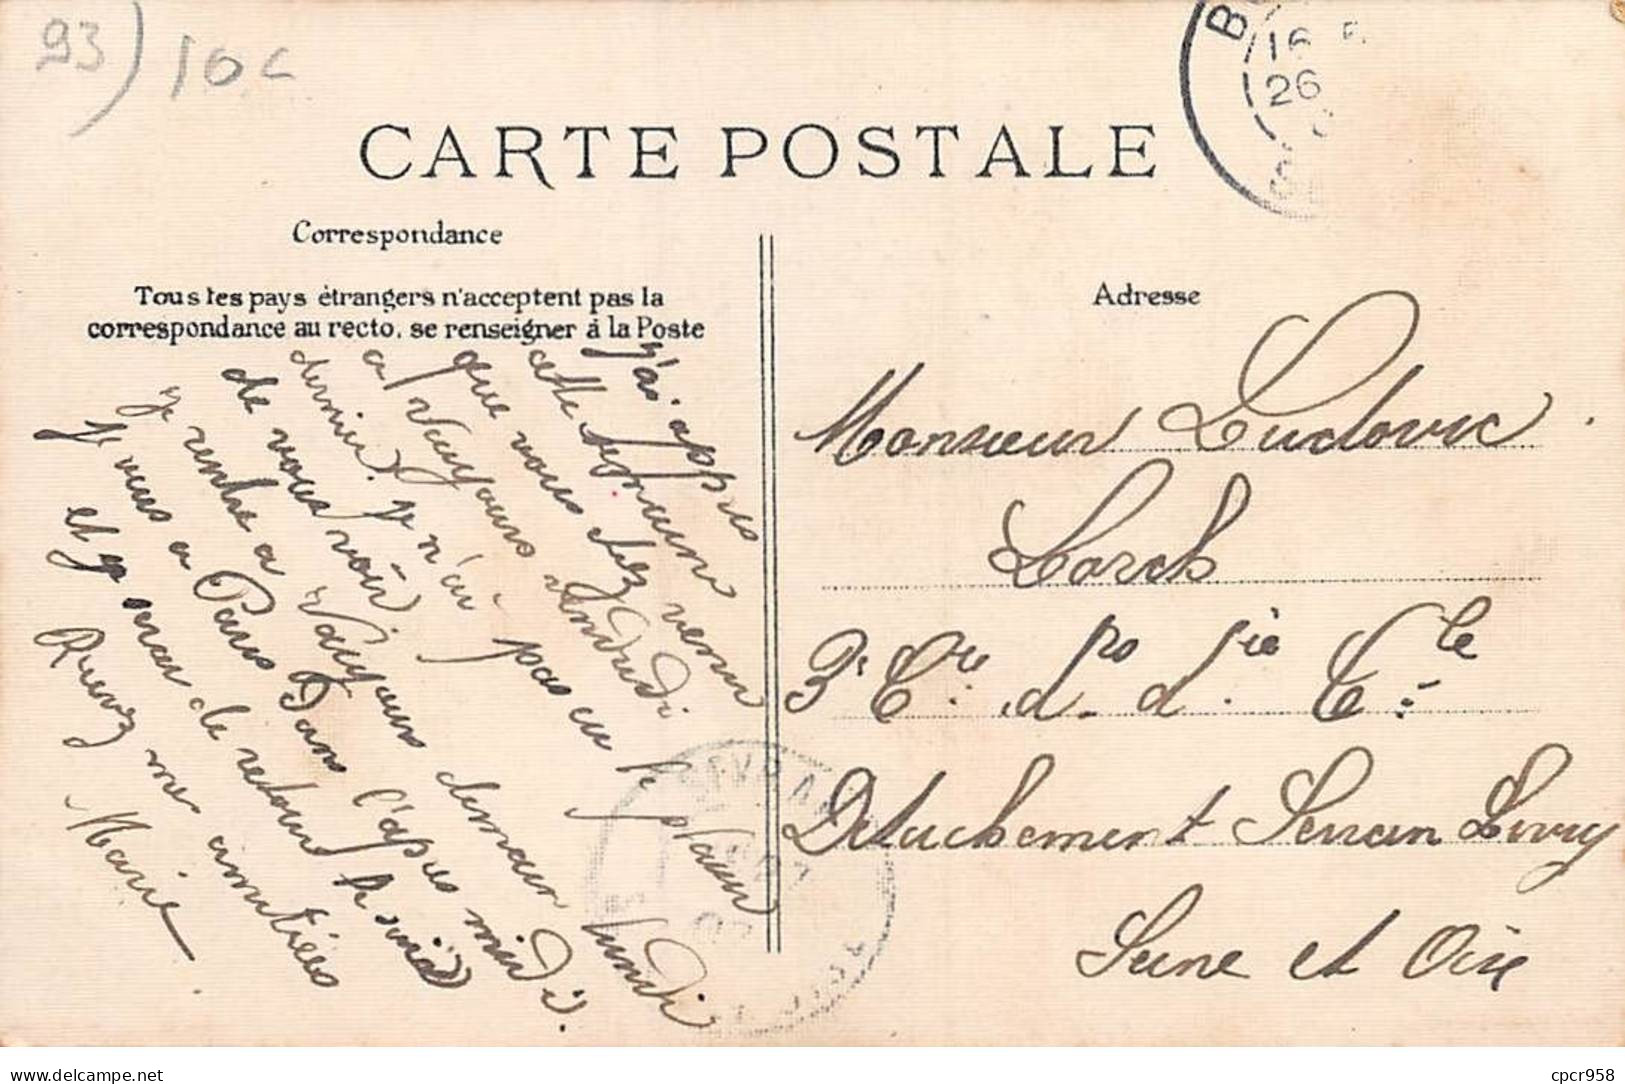 93) 10 c
B
16
26
CARTE POSTALE
Correspondance
Tous les pays étrangers n'acceptent pas la
correspondance au recto, se renseigner à la Poste
Adresse
j'ai appris
cette semaine
que vous étiez venu
a Vaujours vendredi
dernier. je n'ai pas eu le plaisir
de vous voir.
je rentre a Vaujours demain lundi
je vais a Paris Dans l'après midi.
et je serai de retour le soir
Recevez mes amitiées
Marie
Monsieur Ludovic
Lorch
3e Cie
Détachement Sevran Livry
Seine et Oise
SEVRAN
cpcr958